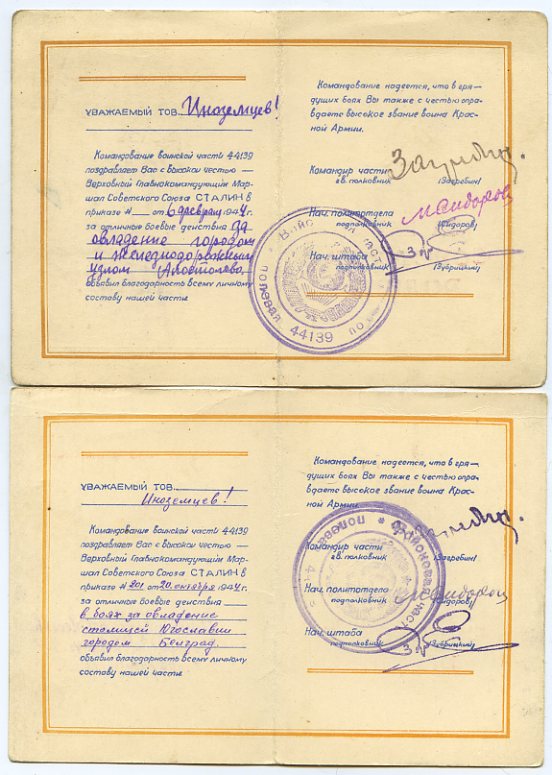 УВАЖАЕМЫЙ ТОВ. Иноземцев!
Командование воинской части 44139
поздравляет Вас с высокой честью —
Верховный Главнокомандующий Мар-
шал Советского Союза СТАЛИН в
приказе № от 6 февраля 1944 г.
за отличные боевые действия за
овладение городом
и железнодорожным
узлом Апостолово
объявил благодарность всему личному
составу нашей части.
Командование надеется, что в гря-
дущих боях Вы также с честью опра-
вдаете высокое звание воина Крас-
ной Армии.
Командир части
гв. полковник (Загребин)
Нач. политотдела
подполковник (Сидоров)
Нач. штаба
подполковник (Зубрицкий)
полевая
44139
УВАЖАЕМЫЙ ТОВ.
Иноземцев!
Командование воинской части 44139
поздравляет Вас с высокой честью —
Верховный Главнокомандующий Мар-
шал Советского Союза СТАЛИН в
приказе № 201 от 20 октября 1944 г.
за отличные боевые действия
в боях за овладение
столицей Югославии
городом Белград.
объявил благодарность всему личному
составу нашей части
Командование надеется, что в гря-
дущих боях Вы также с честью опра-
вдаете высокое звание воина Крас-
ной Армии.
Командир части
(Загребин)
Нач. политотдела
подполковник (Сидоров)
Нач. штаба
подполковник (Зубрицкий)
полевая